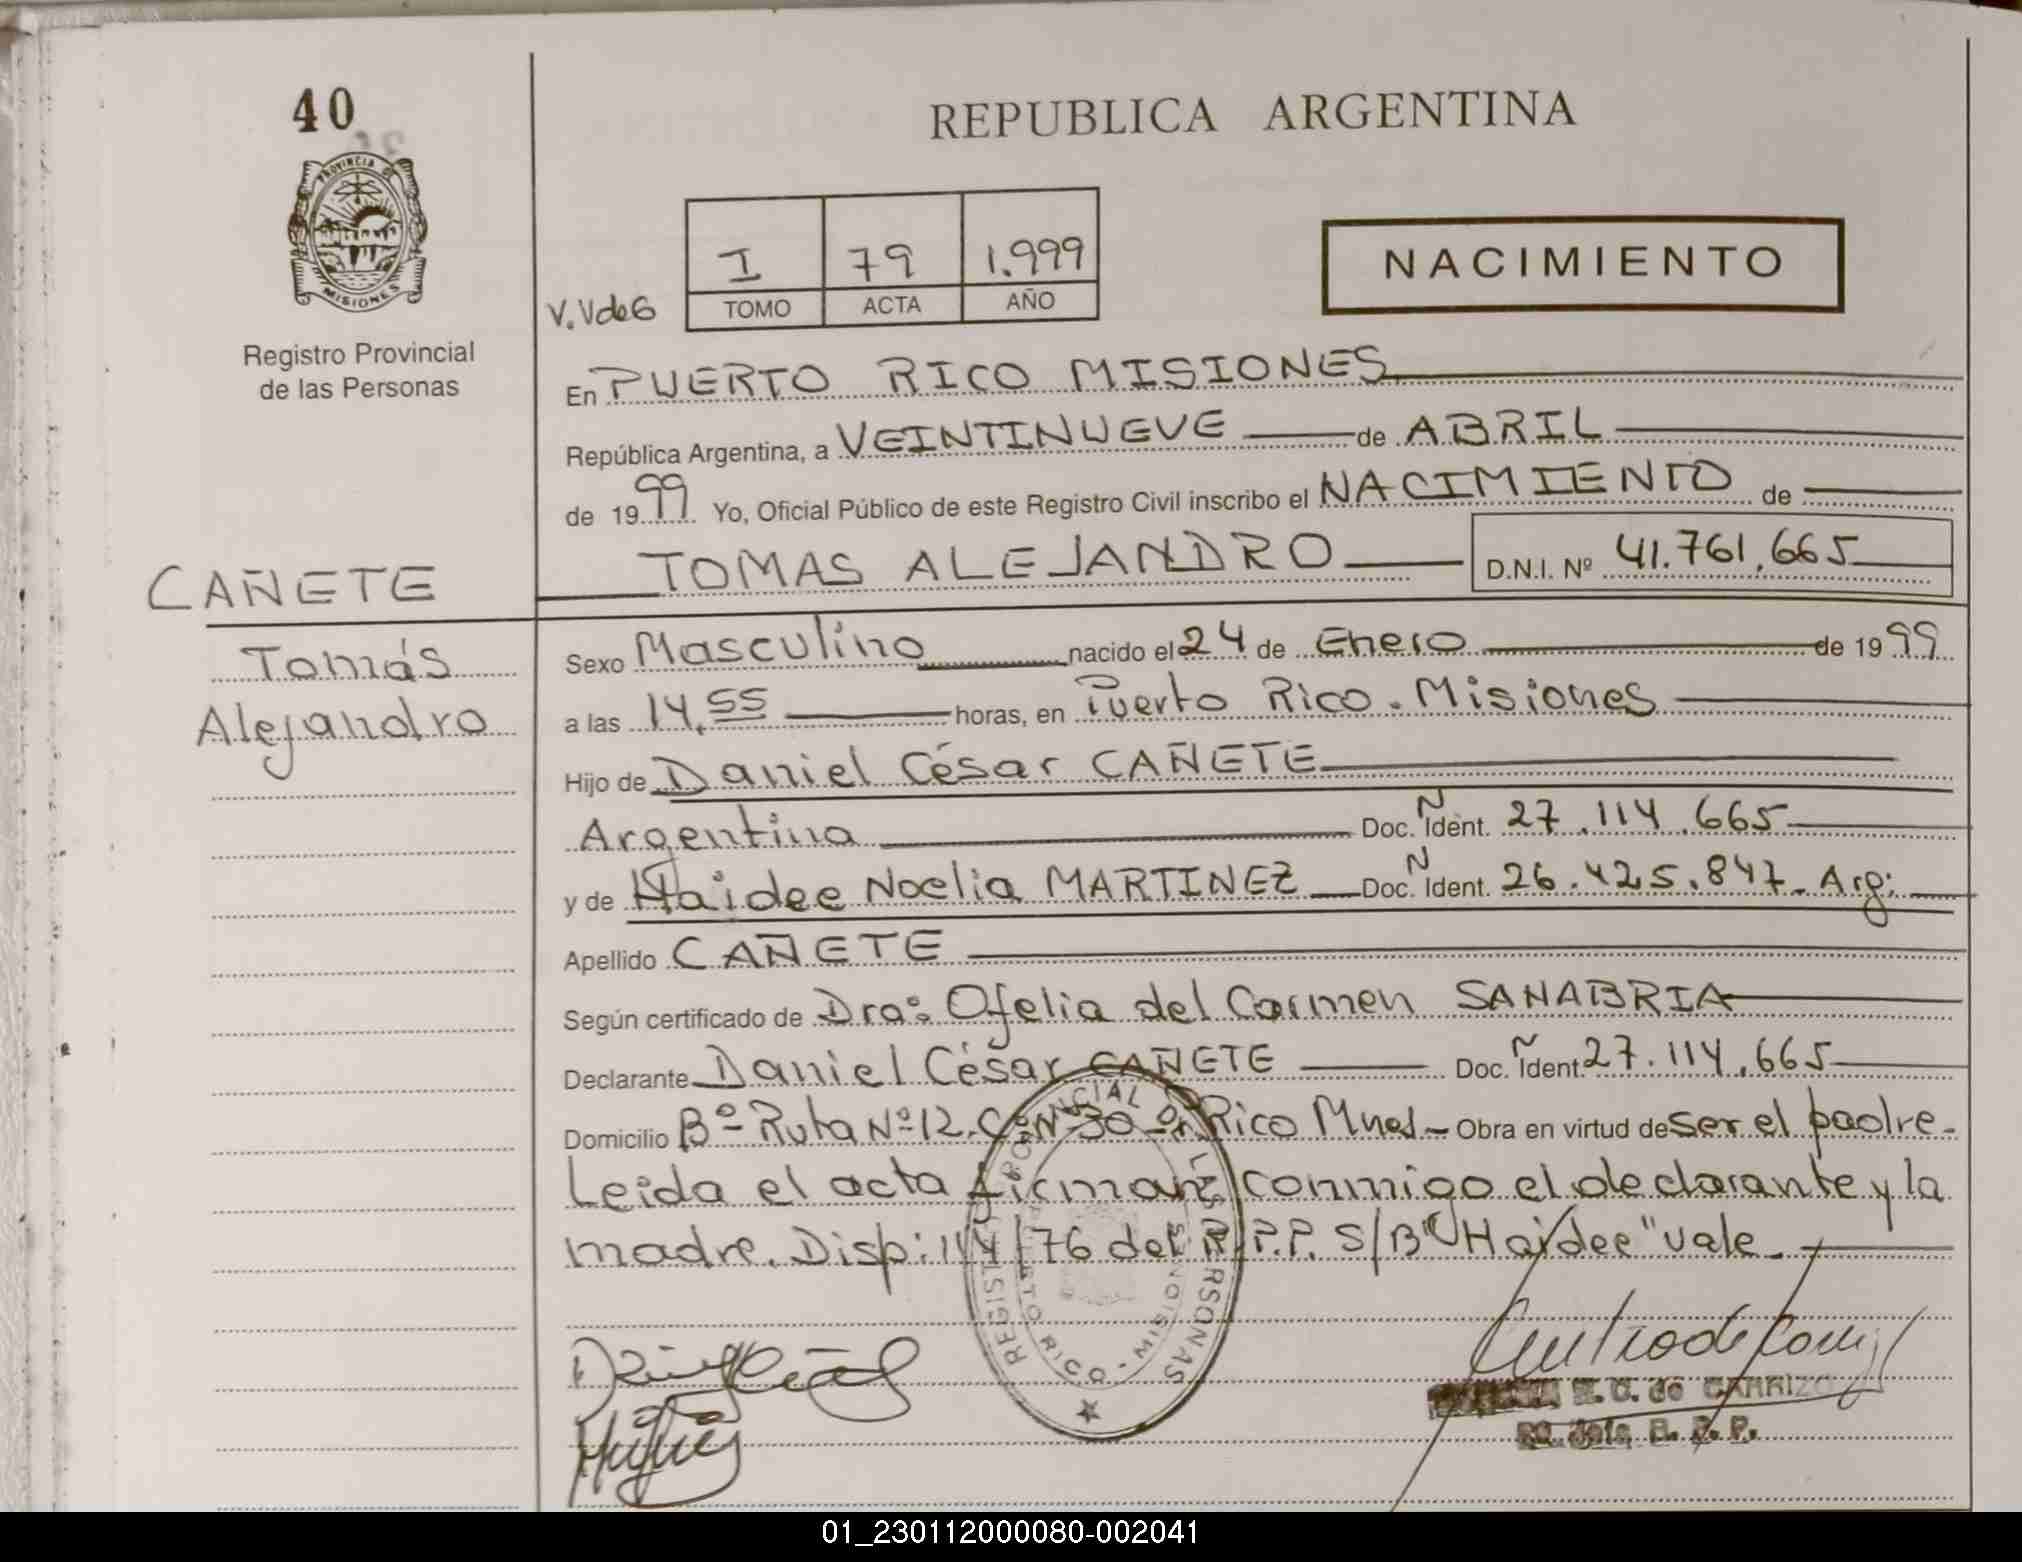 40
PROVINCIA DE
MISIONES
Registro Provincial
de las Personas
CAÑETE
Tomás
Alejandro
REPUBLICA ARGENTINA
V.VdeG
I 79 1.999
TOMO ACTA AÑO
NACIMIENTO
En PUERTO RICO MISIONES
República Argentina, a VEINTINUEVE de ABRIL
de 1999 Yo, Oficial Público de este Registro Civil inscribo el NACIMIENTO de
TOMAS ALEJANDRO D.N.I. Nº 41.761.665
Sexo Masculino nacido el 24 de Enero de 1999
a las 14.55 horas, en Puerto Rico. Misiones
Hijo de Daniel César CAÑETE
Argentina Doc. Ident. 27.114.665
y de Haidee Noelia MARTINEZ Doc. Ident. 26.425.847. Arg.
Apellido CAÑETE
Según certificado de Dra: Ofelia del Carmen SANABRIA
Declarante Daniel César CAÑETE Doc. Ident 27.114.665
Domicilio Bº Ruta Nº 12. Cº Nº 30 Rico Mnes - Obra en virtud de ser el padre.
Leida el acta firman conmigo el declarante y la
madre. Disp: 114/76 del R.P.P. S/B "Haidee" vale.
REGISTRO PROVINCIAL DE LAS PERSONAS
PUERTO RICO - MISIONES
de CARRIZO
R. P. P.
01_230112000080-002041